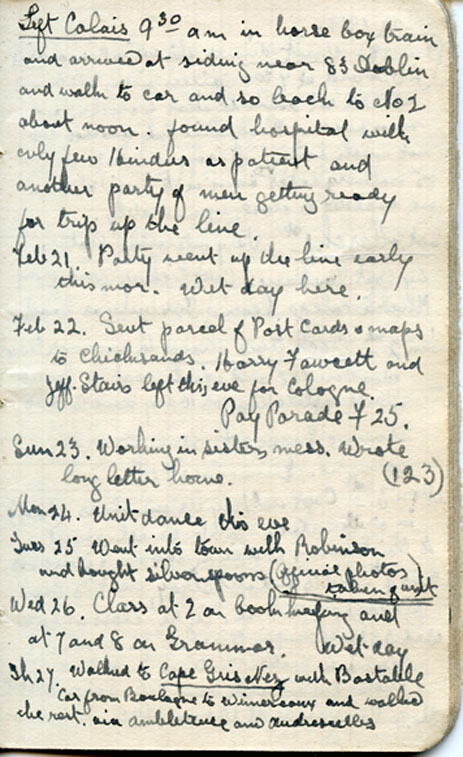 Left Calais 9³⁰ am in horse box train
and arrived at siding near 83 Dublin
and walk to car and so back to No 2
about noon. found hospital with
only few Hindus as patient and
another party of men getting ready
for trip up the line.
Feb 21. Party went up the line early
this mor. Wet day here.
Feb 22. Sent parcel of Post Cards & maps
to Chicksands. Harry Fawcett and
Jeff. Stairs left this eve for Cologne.
Pay Parade F 25.
Sun 23. Working in sisters mess. Wrote
long letter home. (123)
Mon 24. Unit dance this eve
Tues 25 Went into town with Robinson
and bought silver spoons (official photos
taken of unit)
Wed 26. Class at 2 on bookkeeping and
at 7 and 8 on Grammar. Wet day
Th 27. Walked to Cape Gris Nez with Bastable
Car from Boulogne to Wimereaux and walked
the rest. via ambleteuse and audresselles